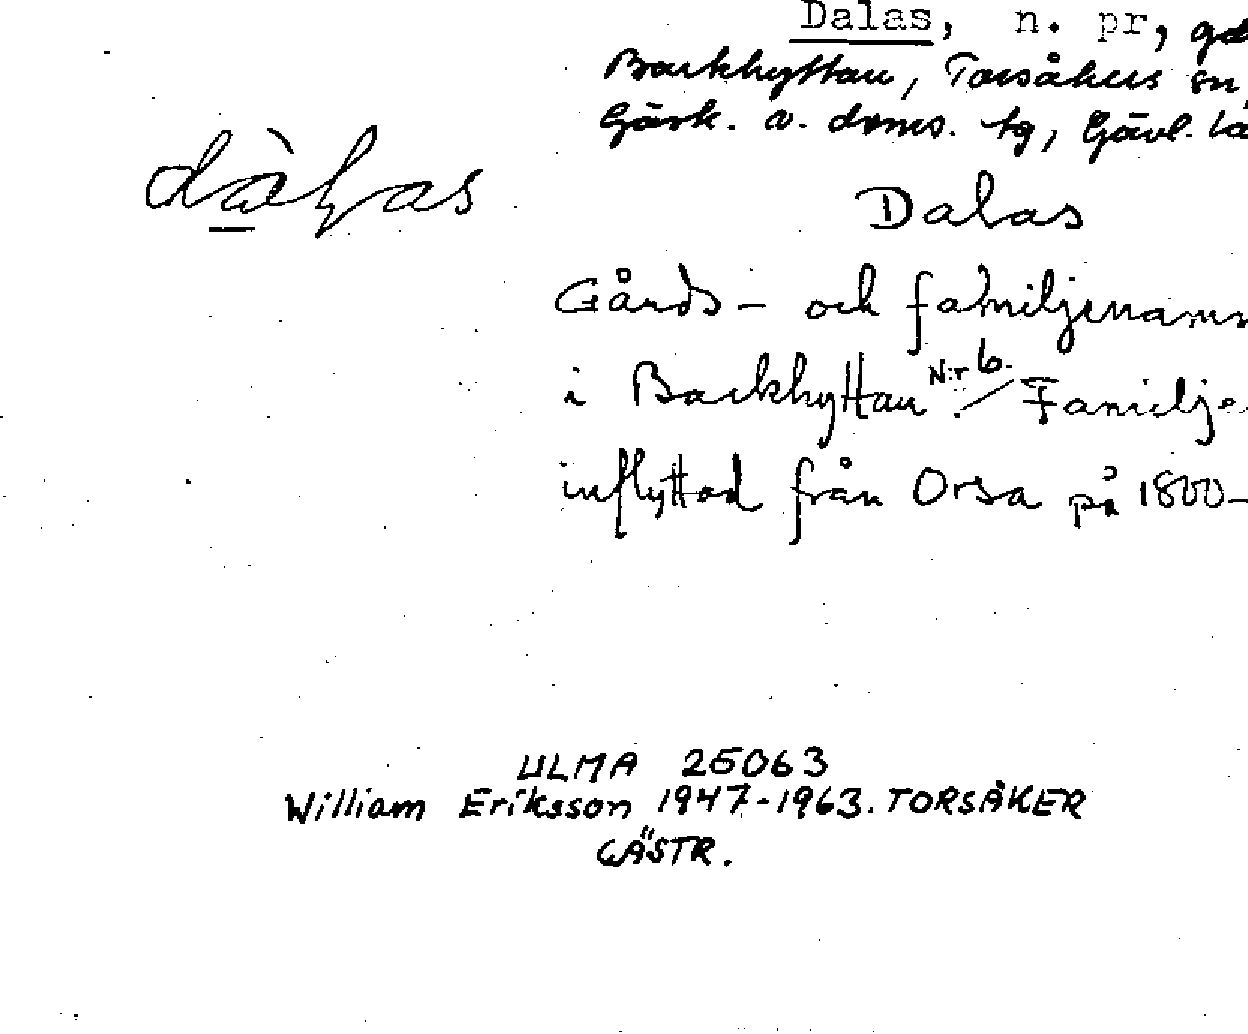 Dalas, n. pr, gd
Backhyttan, Torsåkers sn,
Gästr. v. doms. tg, Gävl. lä
dàɽas
Dalas
Gårds- och familjenamn
i Backhyttan N:r 6. Familje
inflyttad från Orsa på 1800-
ULMA 25063
William Eriksson 1947-1963. TORSÅKER
GÄSTR.